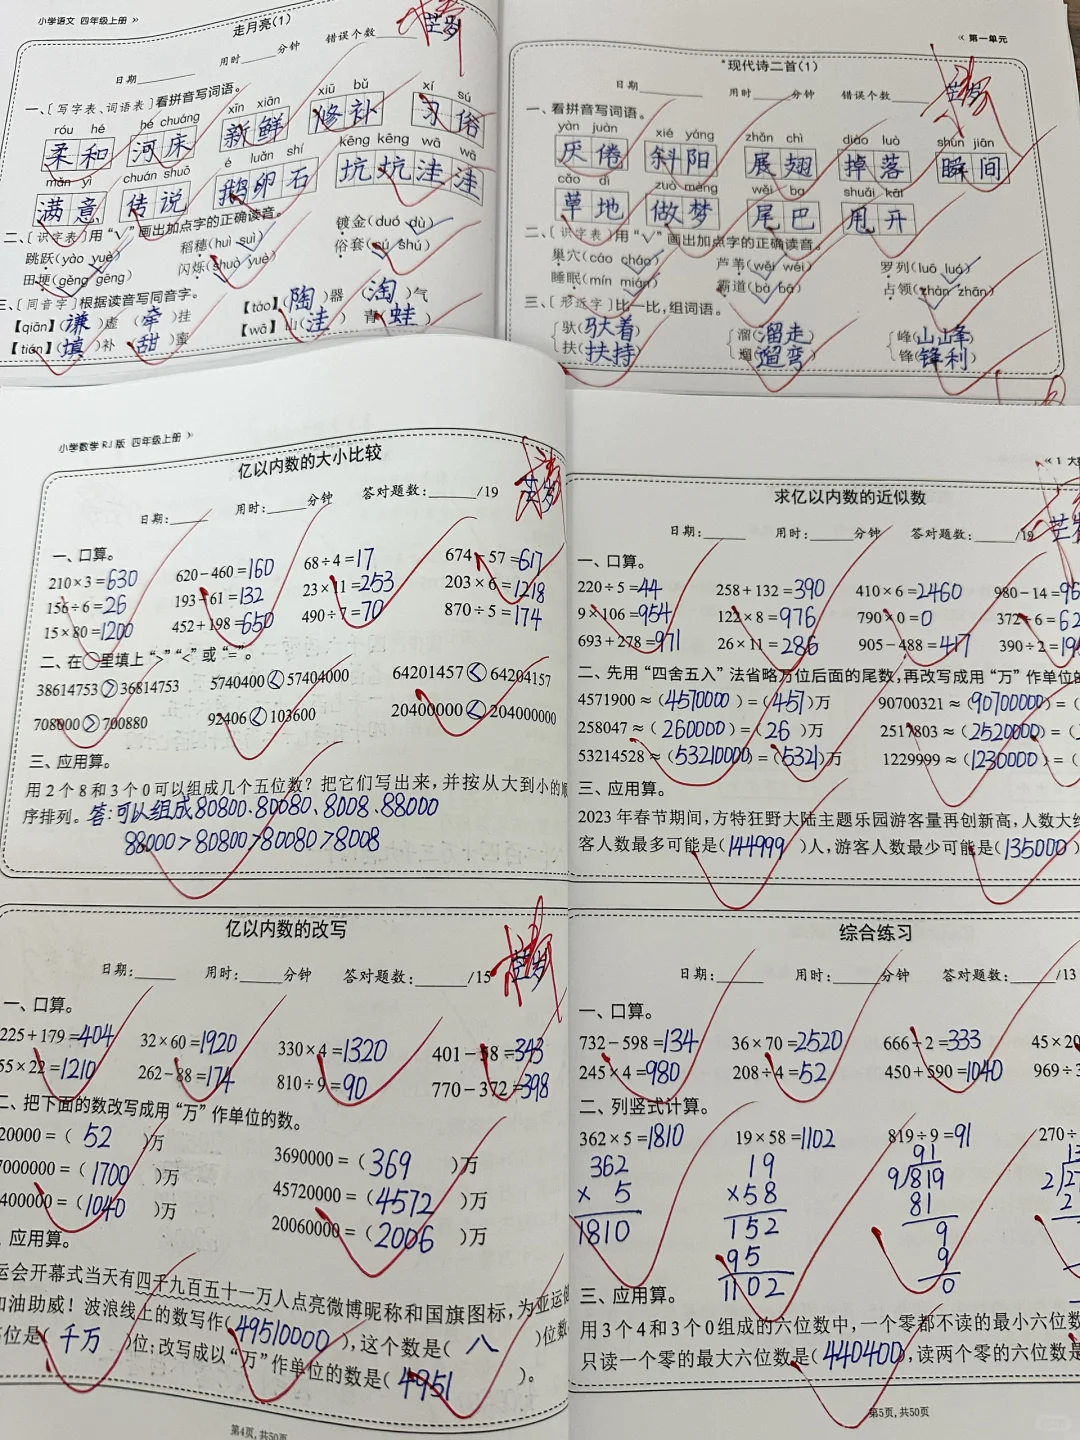 小学语文 四年级上册 »
走月亮(1)
日期 用时 分钟 错误个数
一、〔写字表、词语表〕看拼音写词语。
róu hé hé chuáng xīn xiān xiū bǔ xí sú
柔和 河床 新鲜 修补 习俗
mǎn yì chuán shuō é luǎn shí kēng kēng wā wā
满意 传说 鹅卵石 坑坑洼洼
二、〔识字表〕用“√”画出加点字的正确读音。
跳跃(yào yuè) 稻穗(huì suì) 镀金(duó dù)
田埂(gěng gēng) 闪烁(shuò yuè) 俗套(sú shú)
三、〔同音字〕根据读音写同音字。
【qiān】(谦)虚 (牵)挂 【táo】(陶)器 (淘)气
【tián】(填)补 (甜)蜜 【wā】山(洼) 青(蛙)
« 第一单元
*现代诗二首(1)
日期 用时 分钟 错误个数
一、看拼音写词语。
yàn juàn xié yáng zhǎn chì diào luò shùn jiān
厌倦 斜阳 展翅 掉落 瞬间
cǎo dì zuò mèng wěi ba shuǎi kāi
草地 做梦 尾巴 甩开
二、〔识字表〕用“√”画出加点字的正确读音。
巢穴(cáo cháo) 芦苇(wěi wéi) 罗列(luō luó)
睡眠(mín mián) 霸道(bà bā) 占领(zhàn zhān)
三、〔形近字〕比一比,组词语。
驮(驮着) 溜(溜走) 峰(山峰)
扶(扶持) 遛(遛弯) 锋(锋利)
小学数学 RJ版 四年级上册 »
亿以内数的大小比较
日期: 用时: 分钟 答对题数: /19
一、口算。
210×3=630 620-460=160 68÷4=17 674-57=617
156÷6=26 193-61=132 23×11=253 203×6=1218
15×80=1200 452+198=650 490÷7=70 870÷5=174
二、在○里填上“>”“<”或“=”。
38614753>36814753 5740400<57404000 64201457<64204157
708000>700880 92406<103600 20400000<204000000
三、应用算。
用2个8和3个0可以组成几个五位数?把它们写出来,并按从大到小的顺
序排列。答:可以组成80800、80080、8008、88000
88000>80800>80080>8008
« 1 大
求亿以内数的近似数
日期: 用时: 分钟 答对题数: /19
一、口算。
220÷5=44 258+132=390 410×6=2460 980-14=96
9×106=954 122×8=976 790×0=0 372÷6=62
693+278=971 26×11=286 905-488=417 390÷2=19
二、先用“四舍五入”法省略万位后面的尾数,再改写成用“万”作单位的
4571900≈(4570000)=(457)万 90700321≈(90700000)=(
258047≈(260000)=(26)万 2517803≈(2520000)=(
53214528≈(53210000)=(5321)万 1229999≈(1230000)=(
三、应用算。
2023年春节期间,方特狂野大陆主题乐园游客量再创新高,人数大约
客人数最多可能是(144999)人,游客人数最少可能是(135000)
亿以内数的改写
日期: 用时: 分钟 答对题数: /15
一、口算。
225+179=404 32×60=1920 330×4=1320 401-58=343
55×22=1210 262-88=174 810÷9=90 770-372=398
二、把下面的数改写成用“万”作单位的数。
20000=(52)万 3690000=(369)万
7000000=(1700)万 45720000=(4572)万
400000=(1040)万 20060000=(2006)万
应用算。
运会开幕式当天有四千九百五十一万人点亮微博昵称和国旗图标,为亚运健
加油助威!波浪线上的数写作(49510000),这个数是(八)位数
位是(千万)位;改写成以“万”作单位的数是(4951)。
第4页,共50页
综合练习
日期: 用时: 分钟 答对题数: /13
一、口算。
732-598=134 36×70=2520 666÷2=333 45×20
245×4=980 208÷4=52 450+590=1040 969÷3
二、列竖式计算。
362×5=1810 19×58=1102 819÷9=91 270÷
362 19 91 13
× 5 ×58 9/819 2/27
1810 152 81 2
95 9
1102 9
0
三、应用算。
用3个4和3个0组成的六位数中,一个零都不读的最小六位数
只读一个零的最大六位数是(440400),读两个零的六位数是
第5页,共50页